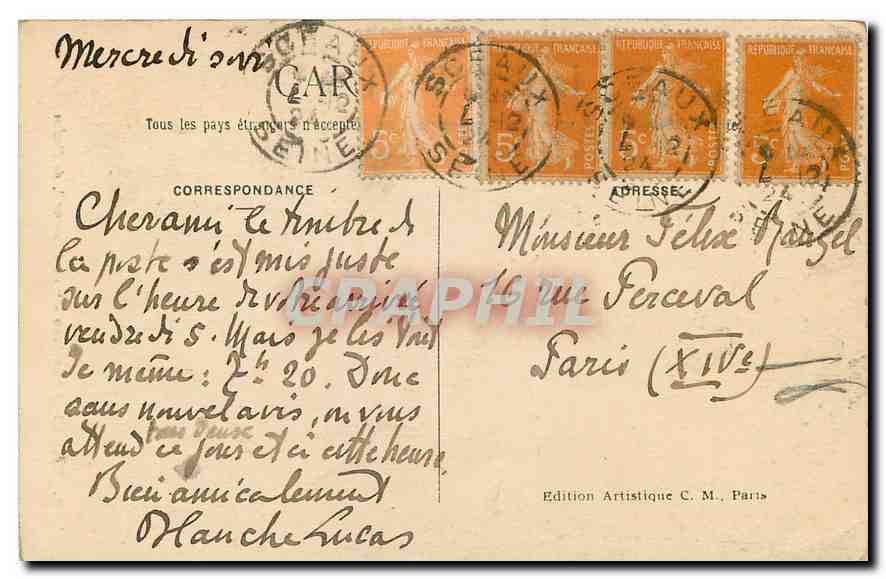 Mercredi soir
CAR
Tous les pays étrangers n'accepte
REPUBLIQUE FRANÇAISE
5c
POSTES
REPUBLIQUE FRANÇAISE
5c
POSTES
REPUBLIQUE FRANÇAISE
5c
POSTES
REPUBLIQUE FRANÇAISE
5c
POSTES
SCEAUX
SEINE
SCEAUX
SEINE
SCEAUX
SEINE
SCEAUX
SEINE
CORRESPONDANCE
Cher ami le timbre de
la poste s'est mis juste
sur l'heure de votre arrivée
vendredi 5. Mars je lis
de même: 7h 20. Donc
sans nouvel avis, on vous
attend ce jour et à cette heure.
Bien amicalement
Blanche Lucas
ADRESSE
Monsieur Félix
16 rue Perceval
Paris (XIVe)
Edition Artistique C. M., Paris
CPAPHIL